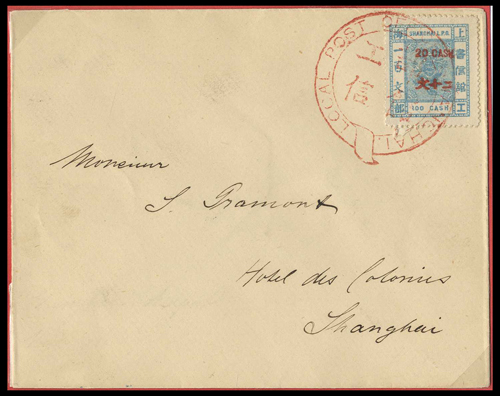 LOCAL POST OFFICE
SHANGHAI
SHANGHAI L.P.O.
20 CASH
文十二
100 CASH
Monsieur
S. Gramont
Hotel des Colonies
Shanghai